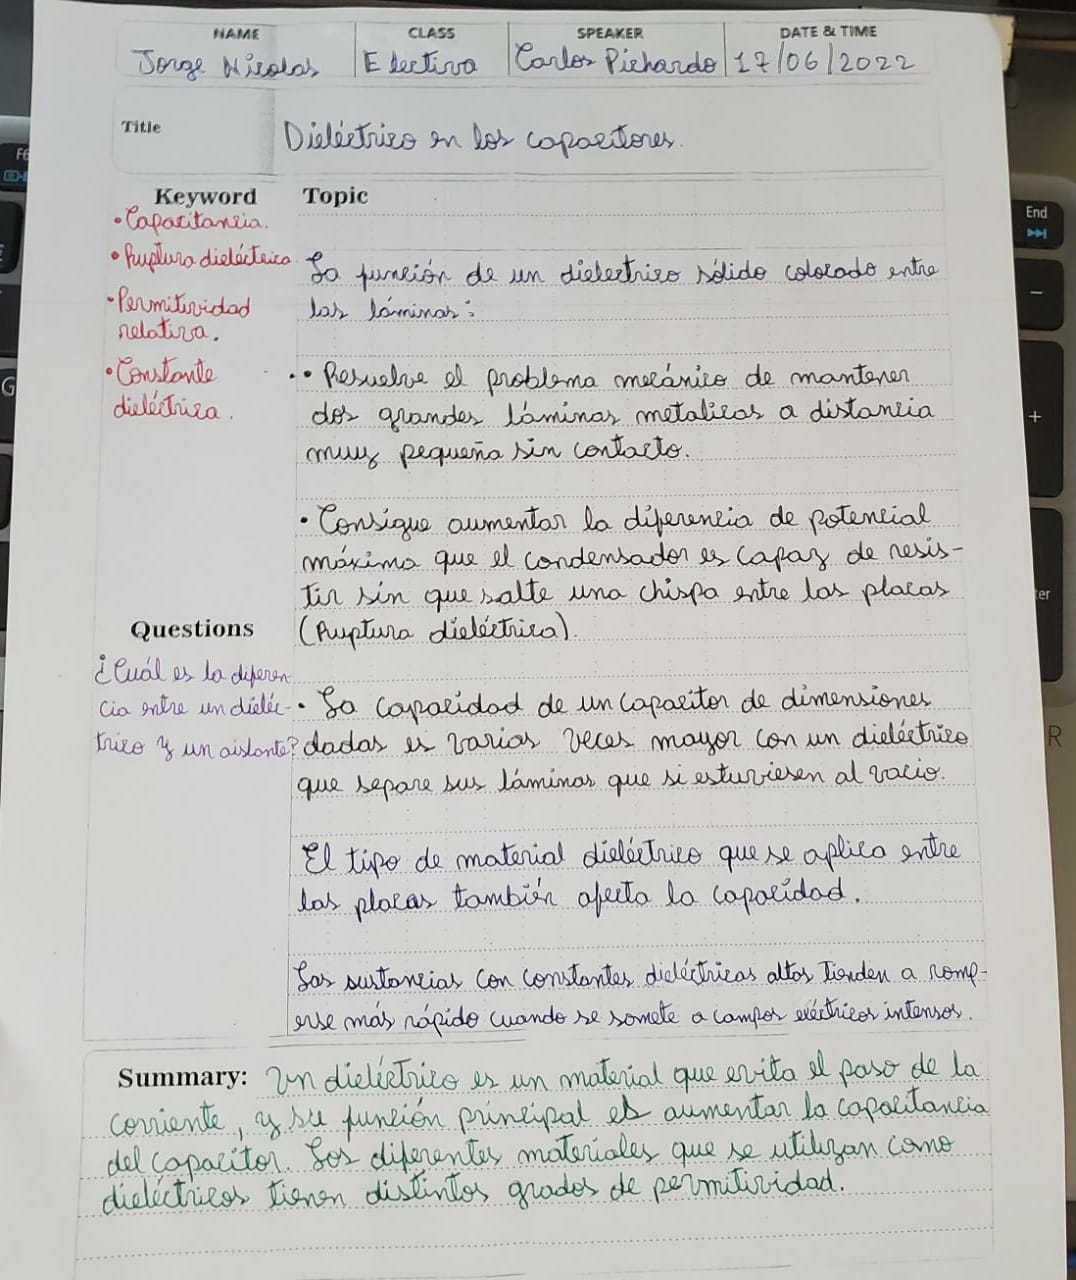 NAME CLASS SPEAKER DATE & TIME
Jorge Nicolas Electiva Carlos Pichardo 17/06/2022
Title
Dieléctrico en los capacitores.
Keyword
• Capacitancia.
• Ruptura dieléctrica
• Permitividad
relativa.
• Constante
dieléctrica.
Topic
La función de un dielectrico sólido colocado entre
las láminas:
• Resuelve el problema mecánico de mantener
dos grandes láminas metalicas a distancia
muy pequeña sin contacto.
• Consigue aumentar la diferencia de potencial
máximo que el condensador es capaz de resis-
tir sin que salte una chispa entre las placas
(Ruptura dieléctrica).
• La capacidad de un capacitor de dimensiones
dadas es varias veces mayor con un dieléctrico
que separe sus láminas que si estuviesen al vacio.
El tipo de material dieléctrico que se aplica entre
las placas también afecta la capacidad.
Las sustancias con constantes dieléctricas altas tienden a romp-
erse más rápido cuando se somete a campos eléctricos intensos.
Questions
¿Cuál es la diferen
cia entre un dieléc-
trico y un aislante?
Summary: Un dieléctrico es un material que evita el paso de la
corriente, y su función principal es aumentar la capacitancia
del capacitor. Los diferentes materiales que se utilizan como
dieléctricos tienen distintos grados de permitividad.
End
-
+
R
F6
G